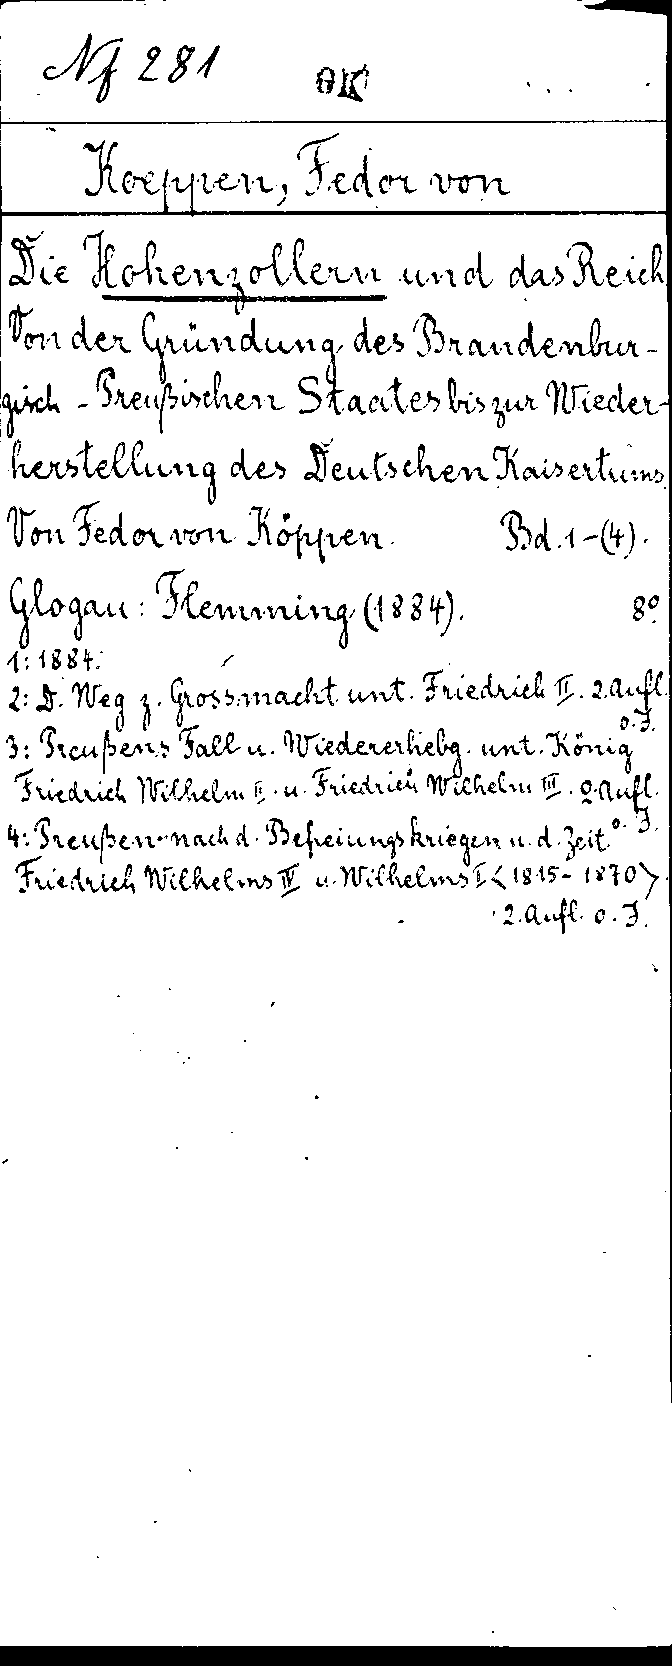 Nf 281
OK
Koeppen, Fedor von
Die Hohenzollern und das Reich
Von der Gründung des Brandenbur-
gisch-Preußischen Staates bis zur Wieder-
herstellung des Deutschen Kaisertums.
Von Fedor von Köppen. Bd. 1-(4).
Glogau: Flemming (1884). 8º
1: 1884.
2: D. Weg z. Grossmacht unt. Friedrich II. 2. Aufl.
o. J.
3: Preußens Fall u. Wiedererhebg. unt. König
Friedrich Wilhelm II. u. Friedrich Wilhelm III. 2. Aufl.
o. J.
4: Preußen nach d. Befreiungskriegen u. d. Zeit
Friedrich Wilhelms IV u. Wilhelms I <1815-1870>.
2. Aufl. o. J.